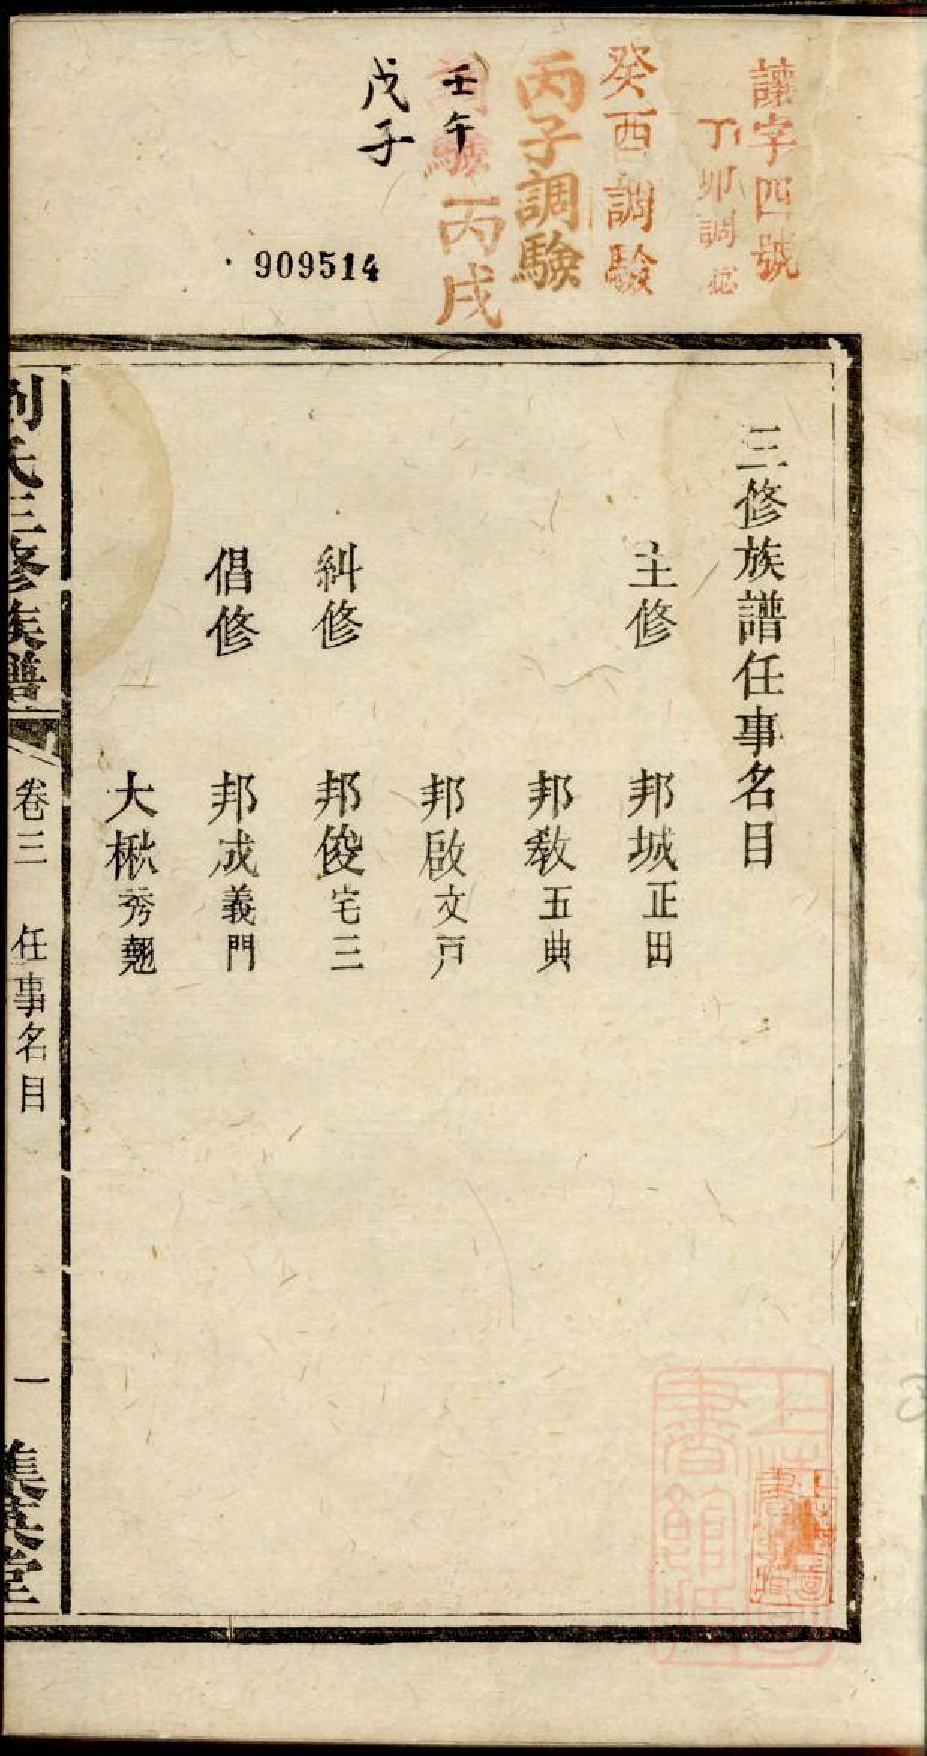 讓字四號
丁卯調
癸酉調驗
丙子調驗
調驗丙戌
壬午
戊子
909514
三修族譜任事名目
主修 邦城正田
邦教五典
邦啟文戸
糾修 邦俊宅三
倡修 邦成義門
大楸秀翹
劉氏三修族譜 卷三 任事名目 一 集英堂